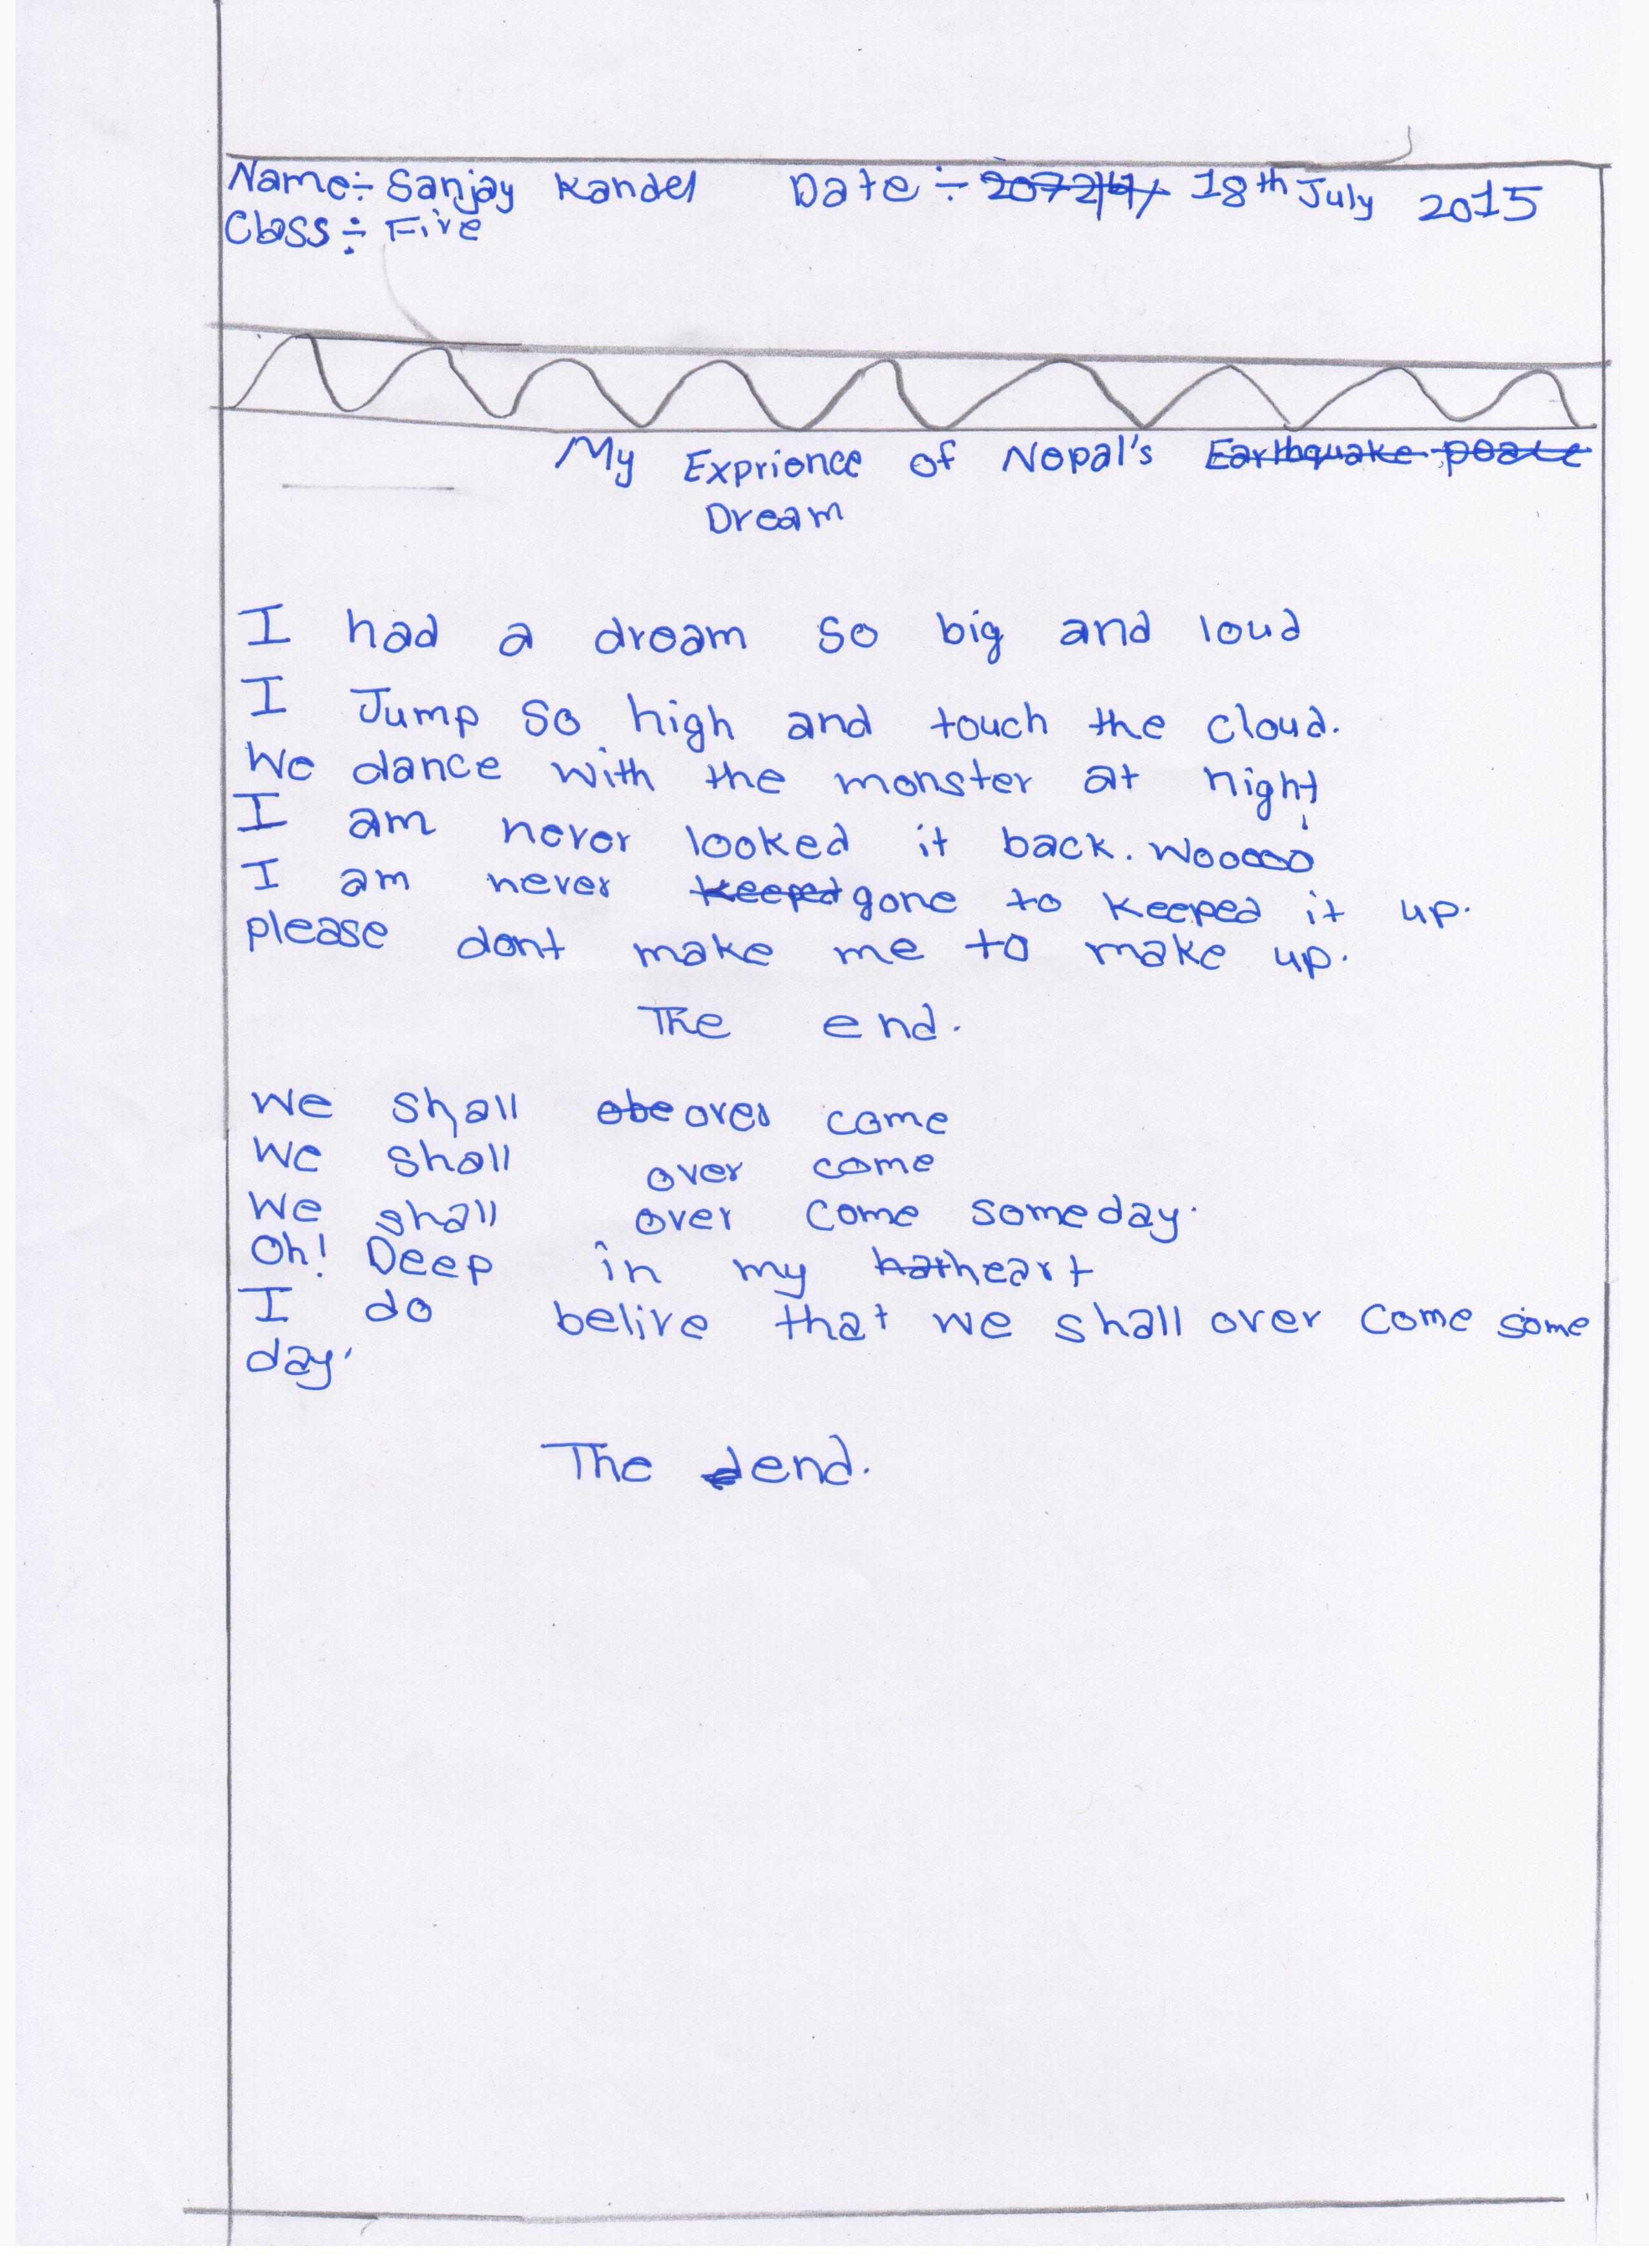 Name:- Sanjay Kandel Date:- 2072/4/ 18th July 2015
Class:- Five
My Exprience of Nepal's Earthquake
Dream
I had a dream so big and loud
I Jump so high and touch the cloud.
We dance with the monster at night
I am never looked it back. Wooooo
I am never keeped gone to keeped it up.
please dont make me to make up.
The end.
We shall obe over come
We shall over come
We shall over come someday.
Oh! Deep in my hat heart
I do belive that we shall over come some
day.
The end.